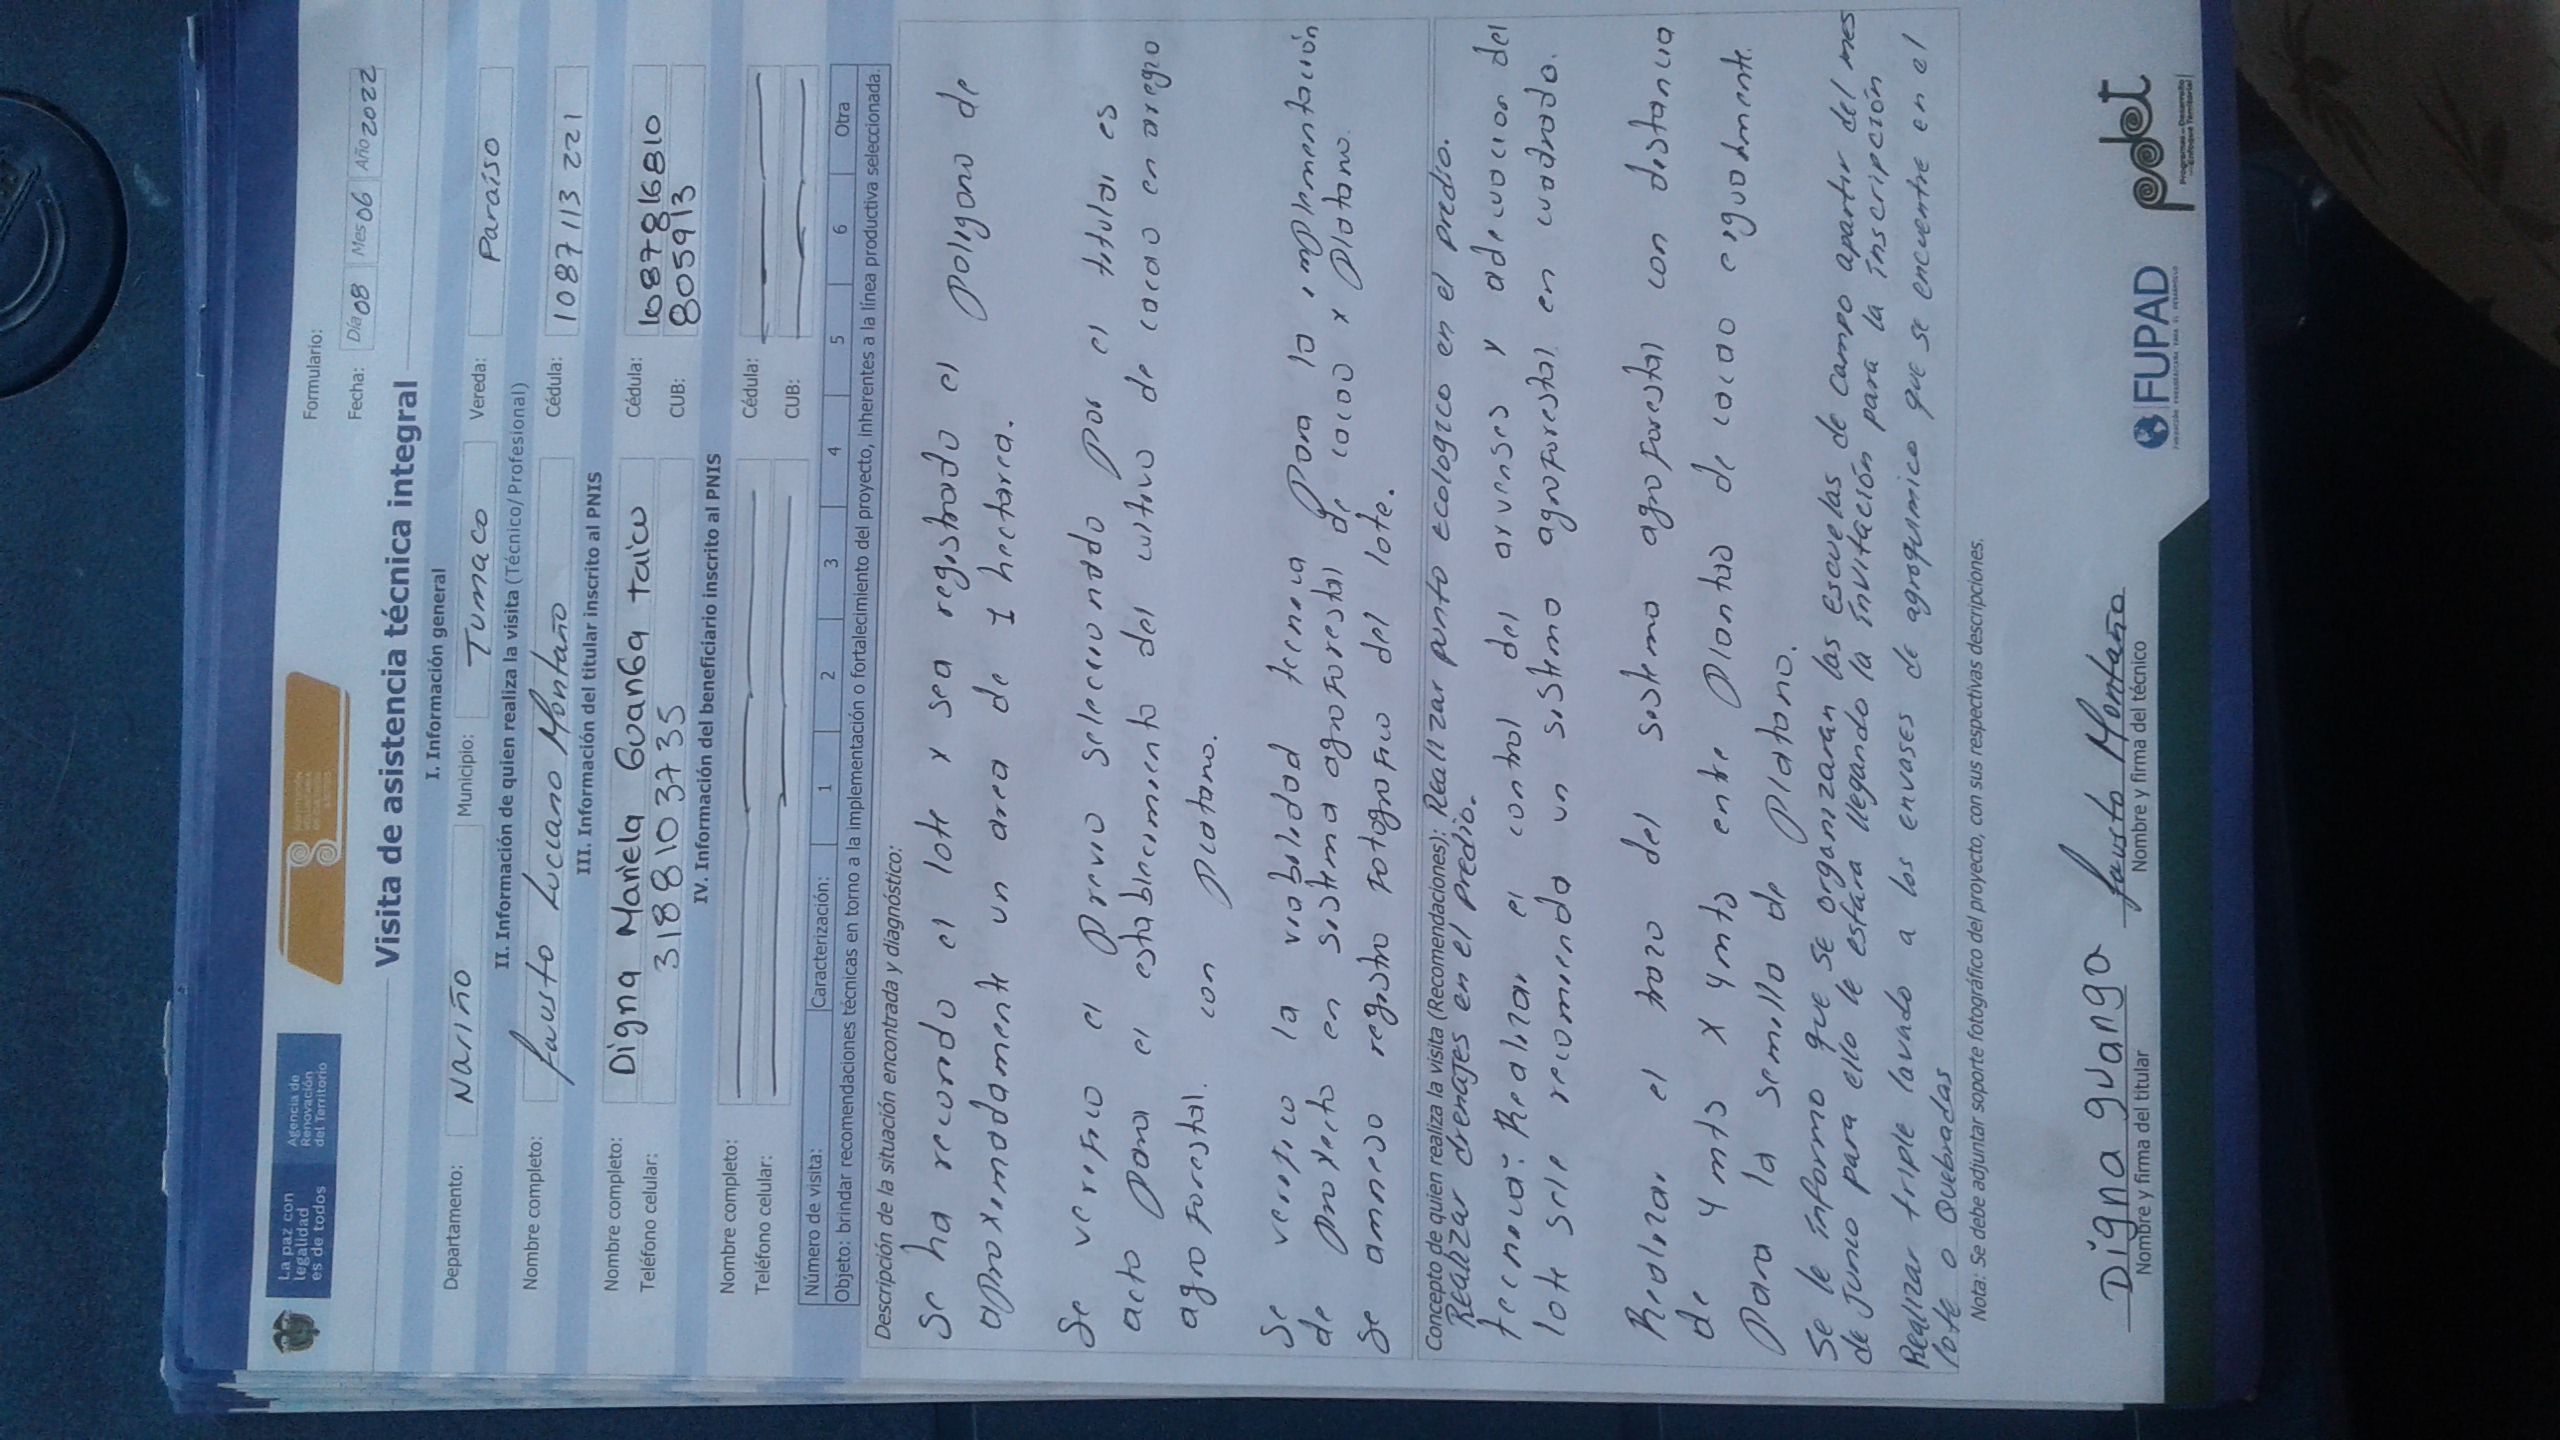 La paz con
legalidad
es de todos
Agencia de
Renovación
del Territorio
Formulario:
Fecha: Día 08 Mes 06 Año 2022
Visita de asistencia técnica integral
I. Información general
Departamento: Nariño Municipio: Tumaco Vereda: Paraíso
II. Información de quien realiza la visita (Técnico/Profesional)
Nombre completo: fausto Luciano Montaño Cédula: 1087113221
III. Información del titular inscrito al PNIS
Nombre completo: Digna Mariela Guanga taicu Cédula: 1087816810
Teléfono celular: 3188103735 CUB: 805913
IV. Información del beneficiario inscrito al PNIS
Nombre completo: Cédula:
Teléfono celular: CUB:
Número de visita: Caracterización: 1 2 3 4 5 6 Otra
Objeto: brindar recomendaciones técnicas en torno a la implementación o fortalecimiento del proyecto, inherentes a la línea productiva seleccionada.
Descripción de la situación encontrada y diagnóstico:
Se ha recorrido el lote y sea registrado el poligono de
aproximadamente un area de 1 hectarea.
Se verifico el previo seleccionado por el titular es
acto para el establecimiento del cultivo de cacao en aregro
agroforestal. con platano.
Se verifico la viabilidad tecnica para la implementación
de proyecto en sistema agroforestal de cacao x platano.
Se annexo registro fotografico del lote.
Concepto de quien realiza la visita (Recomendaciones): Realizar punto ecologico en el predio.
Realizar drenajes en el predio.
tecnica: Realizar el control del arvenses y adecuacion del
lote se le recomienda un sistema agroforestal en cuadrado.
Realizar el trazo del sistema agroforestal con distancia
de 4 mts x 4 mts entre plantas de cacao e igualmente
para la semilla de platano.
Se le informo que se organizaran las escuelas de campo apartir del mes
de Junio para ello le estara llegando la invitación para la inscripción
Realizar triple lavado a los envases de agroquimico que se encuentre en el
lote o Quebradas
Nota: Se debe adjuntar soporte fotográfico del proyecto, con sus respectivas descripciones.
Digna guanga fausto Montaño
Nombre y firma del titular Nombre y firma del técnico
FUPAD
pdet
Programas de Desarrollo
con Enfoque Territorial